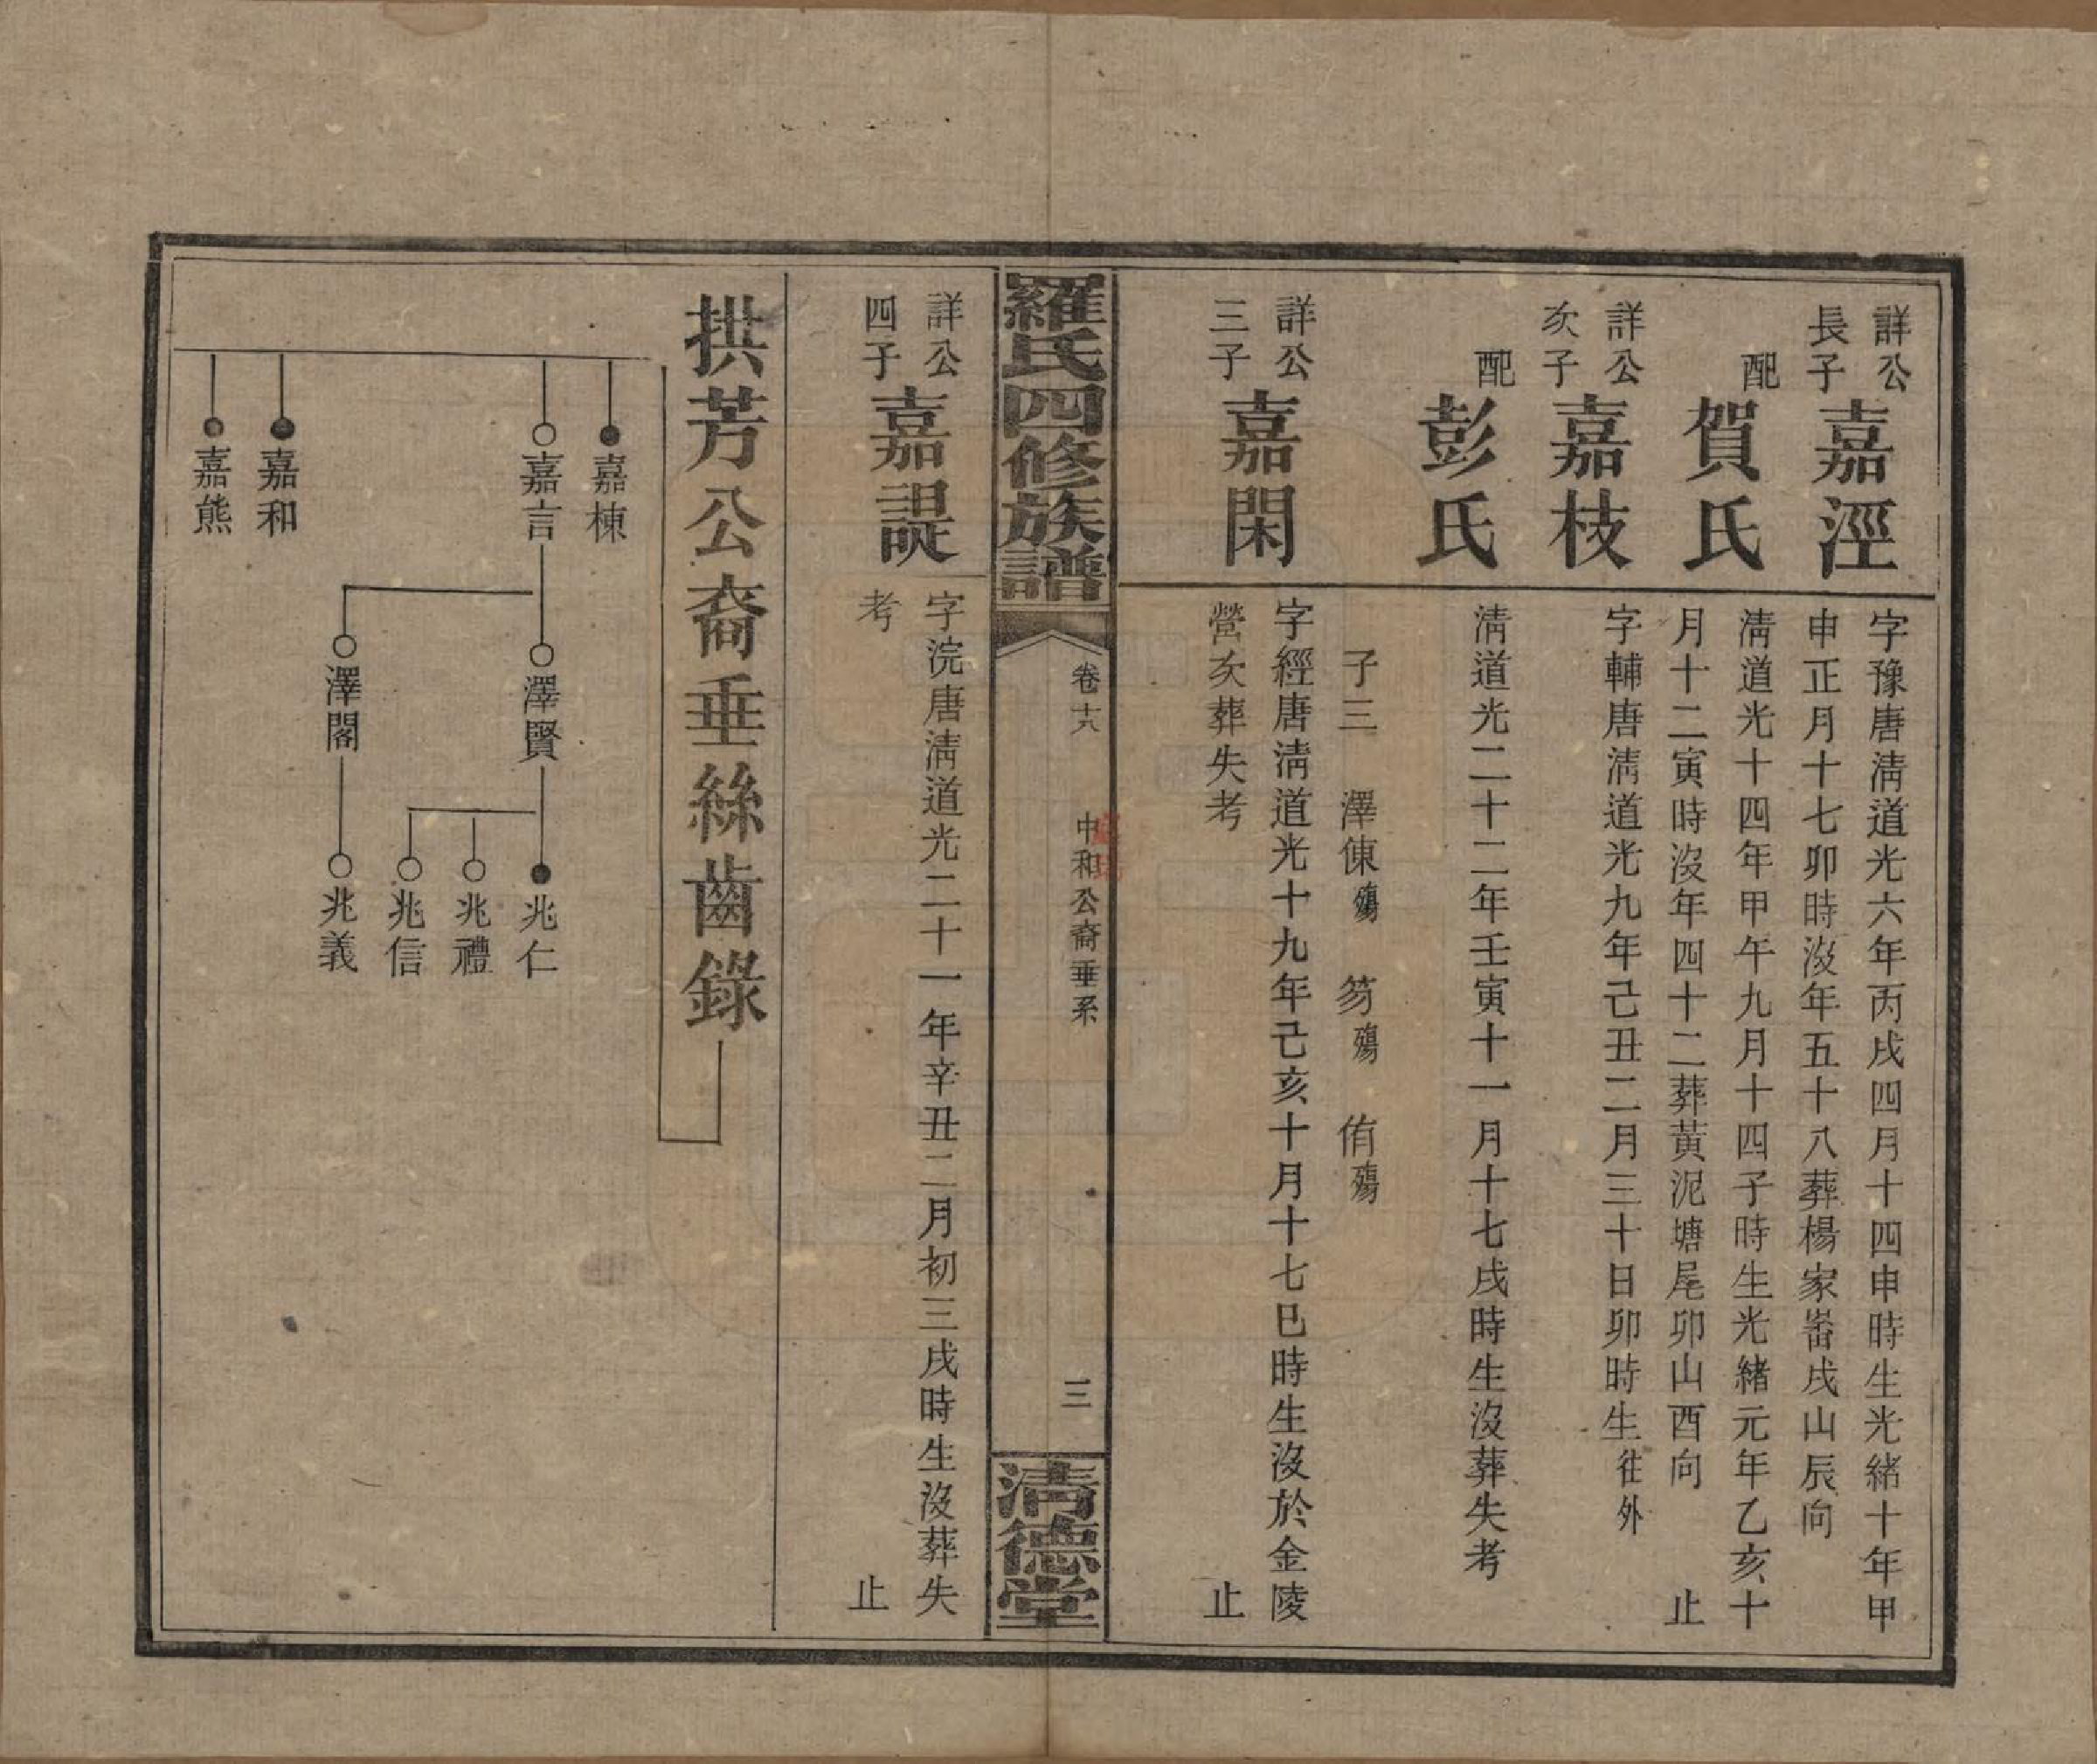 詳公
長子
嘉涇
字豫唐淸道光六年丙戌四月十四申時生光緒十年甲
申正月十七卯時沒年五十八葬楊家崙戌山辰向
配
賀氏
淸道光十四年甲午九月十四子時生光緒元年乙亥十
月十二寅時沒年四十二葬黃泥塘尾卯山酉向 止
詳公
次子
嘉枝
字輔唐淸道光九年己丑二月三十日卯時生徃外
配
彭氏
淸道光二十二年壬寅十一月十七戌時生沒葬失考
子三 澤倲殤 芶殤 侑殤
詳公
三子
嘉閑
字經唐淸道光十九年己亥十月十七巳時生沒於金陵
營次葬失考 止
羅氏四修族譜
卷十六
中和公裔垂系
三
淸德堂
詳公
四子
嘉諟
字浣唐淸道光二十一年辛丑二月初三戌時生沒葬失
考 止
拱芳公裔垂絲齒錄
嘉棟
嘉言
嘉和
嘉熊
澤賢
澤閣
兆仁
兆禮
兆信
兆義